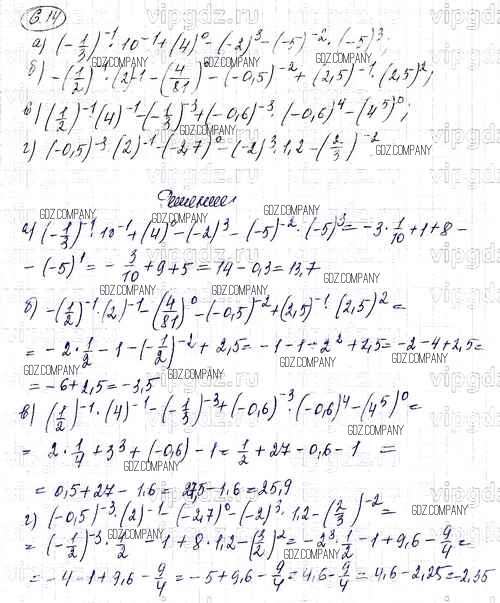 6.14
а) (-1/3)^-1 · 10^-1 + (4)^0 - (-2)^3 - (-5)^-2 · (-5)^3;
б) -(1/2)^-1 · (2)^-1 - (4/81)^0 - (-0,5)^-2 + (2,5)^-1 · (2,5)^2;
в) (1/2)^-1 · (4)^-1 - (-1/3)^-3 + (-0,6)^-3 · (-0,6)^4 - (4^5)^0;
г) (-0,5)^-3 · (2)^-1 - (-2,7)^0 - (-2)^3 · 1,2 - (2/3)^-2
Решение:
а) (-1/3)^-1 · 10^-1 + (4)^0 - (-2)^3 - (-5)^-2 · (-5)^3 = -3 · 1/10 + 1 + 8 -
- (-5)^1 = - 3/10 + 9 + 5 = 14 - 0,3 = 13,7
б) -(1/2)^-1 · (2)^-1 - (4/81)^0 - (-0,5)^-2 + (2,5)^-1 · (2,5)^2 =
= - 2 · 1/2 - 1 - (-1/2)^-2 + 2,5 = -1 - 1 - 2^2 + 2,5 = -2 - 4 + 2,5 =
= -6 + 2,5 = -3,5
в) (1/2)^-1 · (4)^-1 - (-1/3)^-3 + (-0,6)^-3 · (-0,6)^4 - (4^5)^0 =
= 2 · 1/4 + 3^3 + (-0,6) - 1 = 1/2 + 27 - 0,6 - 1 =
= 0,5 + 27 - 1,6 = 27,5 - 1,6 = 25,9
г) (-0,5)^-3 · (2)^-1 - (-2,7)^0 - (-2)^3 · 1,2 - (2/3)^-2 =
= (-1/2)^-3 · 1/2 - 1 + 8 · 1,2 - (3/2)^2 = -2^3 · 1/2 - 1 + 9,6 - 9/4 =
= -4 - 1 + 9,6 - 9/4 = -5 + 9,6 - 9/4 = 4,6 - 9/4 = 4,6 - 2,25 = -2,35